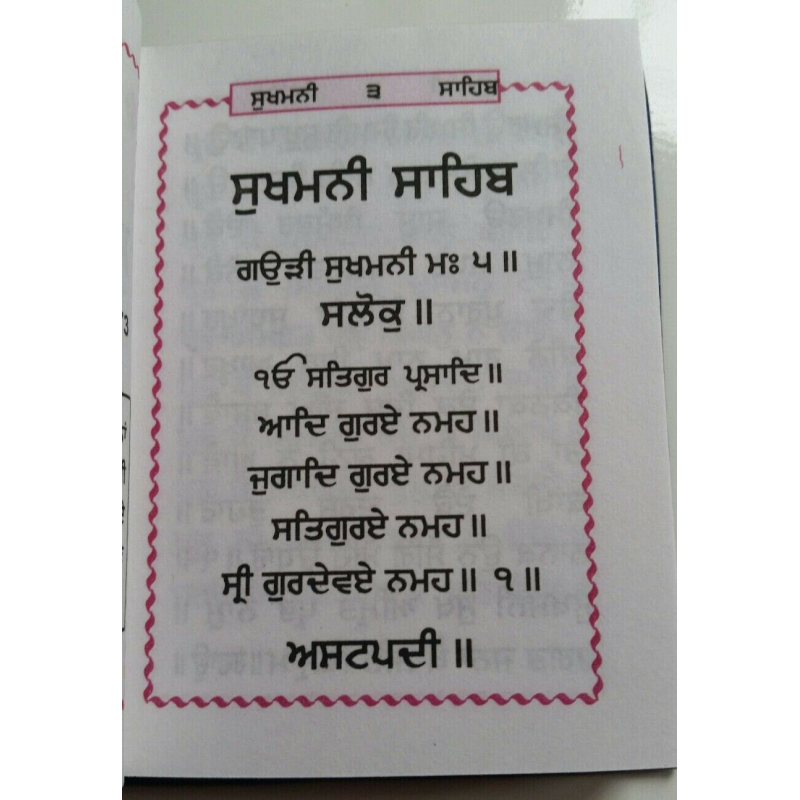 ਸੁਖਮਨੀ ੩ ਸਾਹਿਬ
ਸੁਖਮਨੀ ਸਾਹਿਬ
ਗਉੜੀ ਸੁਖਮਨੀ ਮਃ ੫ ॥
ਸਲੋਕੁ ॥
ੴ ਸਤਿਗੁਰ ਪ੍ਰਸਾਦਿ ॥
ਆਦਿ ਗੁਰਏ ਨਮਹ ॥
ਜੁਗਾਦਿ ਗੁਰਏ ਨਮਹ ॥
ਸਤਿਗੁਰਏ ਨਮਹ ॥
ਸ੍ਰੀ ਗੁਰਦੇਵਏ ਨਮਹ ॥ ੧ ॥
ਅਸਟਪਦੀ ॥